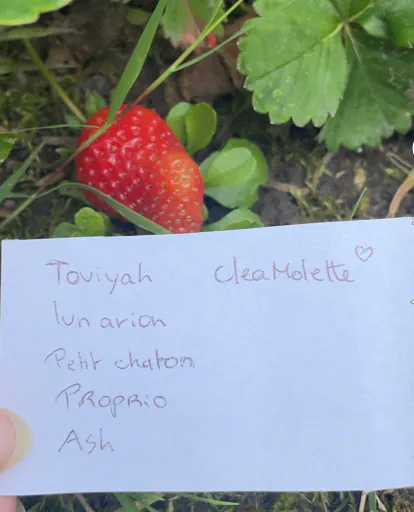 Toviyah CleaMolette ♡
lunarion
Petit chaton
Proprio
Ash